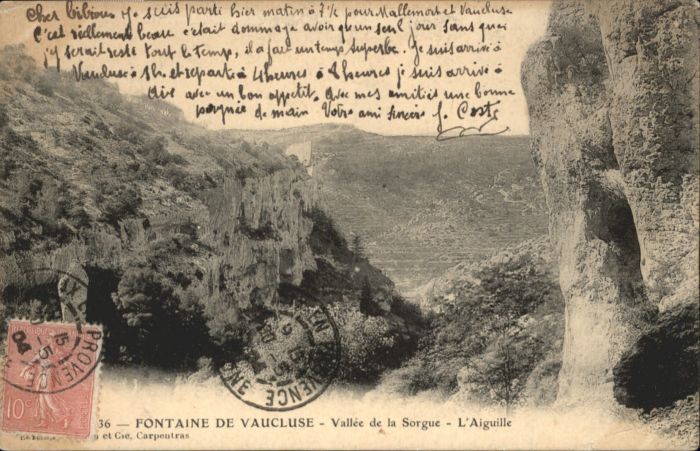 Cher Bibiou Je suis parti hier matin à 5h ½ pour Mallemort et Vaucluse
C'est réellement beau c'était dommage avoir qu'un seul jour sans quoi
j'y serait resté tout le temps, il a fai un temps superbe. Je suis arrivé à
Vaucluse à 1h. et reparti à 4heures à 8heures je suis arrivé à
Aix avec un bon appetit. Avec mes amitiés une bonne
poignée de main Votre ami sincère J. Coste
PROVENCE
15
-5
04
10
36 — FONTAINE DE VAUCLUSE - Vallée de la Sorgue - L'Aiguille
et Cie, Carpentras